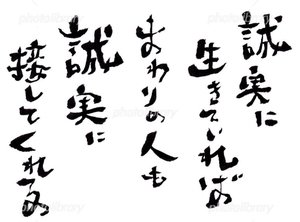 誠実に
生きていれば
まわりの人も
誠実に
接してくれるぬ
photolibrary